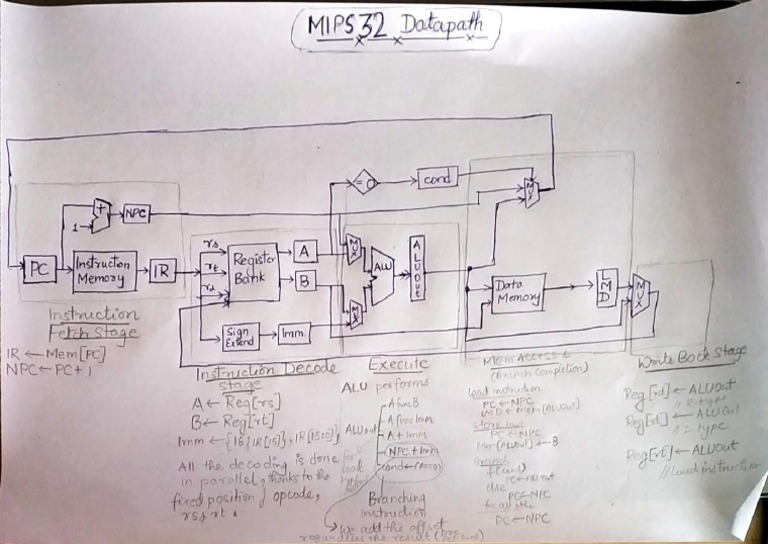 MIPS32 Datapath
= 0
cond
MUX
+
NPC
1
PC
Instruction
Memory
IR
rs
rt
Register
Bank
A
B
MUX
ALU
ALUout
Data
Memory
LMD
MUX
Sign
Extend
Imm
MUX
Instruction
Fetch Stage
IR ← Mem[PC]
NPC ← PC+1
Instruction Decode
Stage
A ← Reg[rs]
B ← Reg[rt]
Imm ←
All the decoding is done
in parallel, thanks to the
fixed position of opcode,
rs, rt.
Execute
ALU performs
ALUout
A func B
A func Imm
A + Imm
NPC + Imm
Branching
instruction
We add the offset
regardless the result
Mem Access &
(Branch Completion)
Load instruction
PC ← NPC
LMD ← Mem[ALUout]
PC ← NPC
Mem[ALUout] ← B
Branch
if(cond)
PC ← ALUout
else
PC ← NPC
PC ← NPC
Write Back Stage
Reg[rd] ← ALUout
// R-type
Reg[rt] ← ALUout
Reg[rt] ← ALUout
// Load instruction